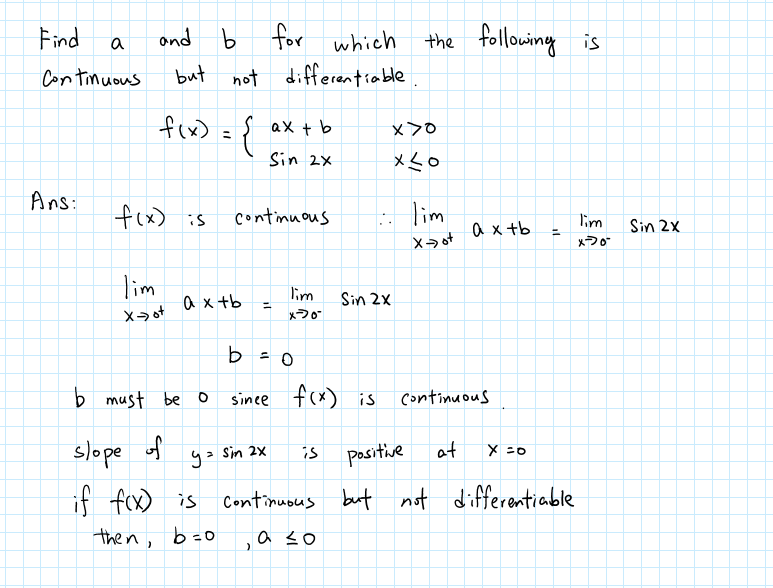 Find a and b for which the following is
continuous but not differentiable.
f(x) = { ax + b x>0
sin 2x x≤0
Ans:
f(x) is continuous ∴ lim x→0⁺ ax+b = lim x→0⁻ sin 2x
lim x→0⁺ ax+b = lim x→0⁻ sin 2x
b = 0
b must be 0 since f(x) is continuous.
slope of y = sin 2x is positive at x=0
if f(x) is continuous but not differentiable
then, b=0 , a ≤0